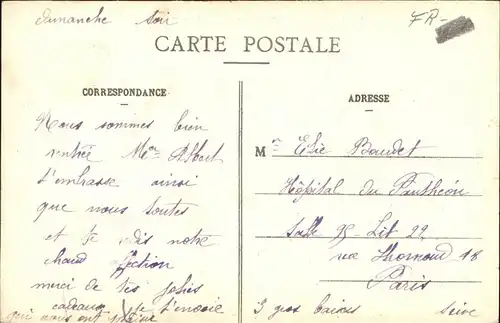 dimanche soir
FR-
CARTE POSTALE
CORRESPONDANCE
ADRESSE
Nous sommes bien
rentrée Mon Albert
t'embrasse ainsi
que nous toutes
et te dis notre
chaud affection
merci de tes jolis
cadeaux je t'envoie
qui nous ont
3 gros baises
Mr Elie Baudet
Hôpital du Panthéon
Salle Lit 22
rue Lhomond 18
Paris